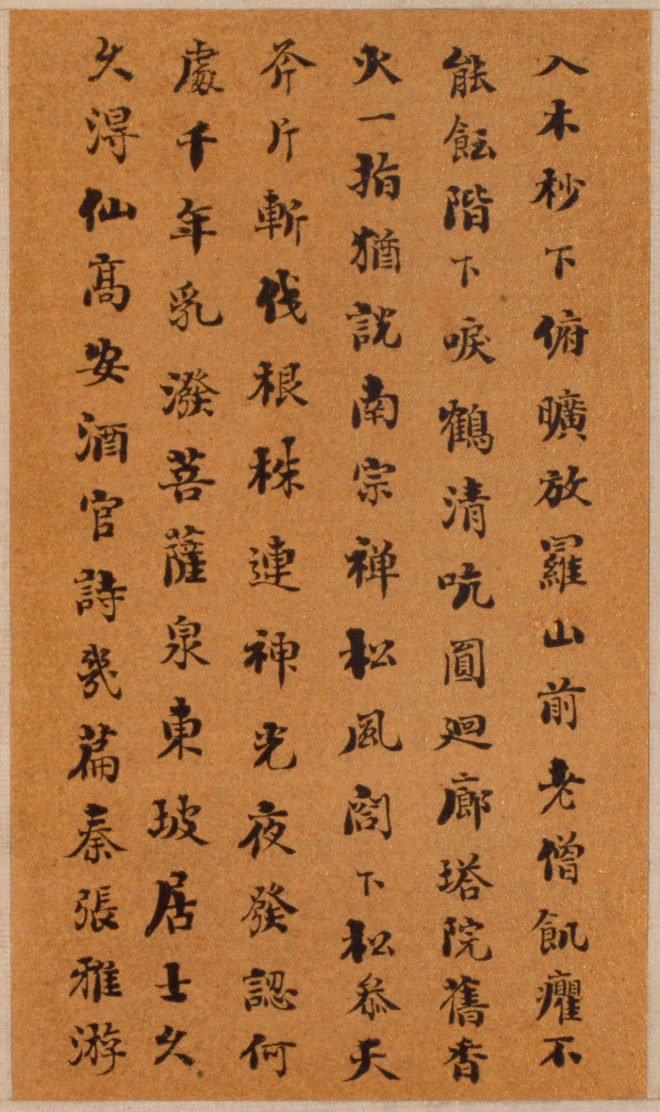 入木杪下俯曠放羅山前老僧飢癯不
能飪階下唳鶴清吭圓廻廊塔院舊香
火一指猶説南宗禅松風閣下松叅天
斧斤斬伐根株連神光夜發認何
處千年乳潑菩薩泉東坡居士久
久得仙高安酒官詩幾篇秦張雅游